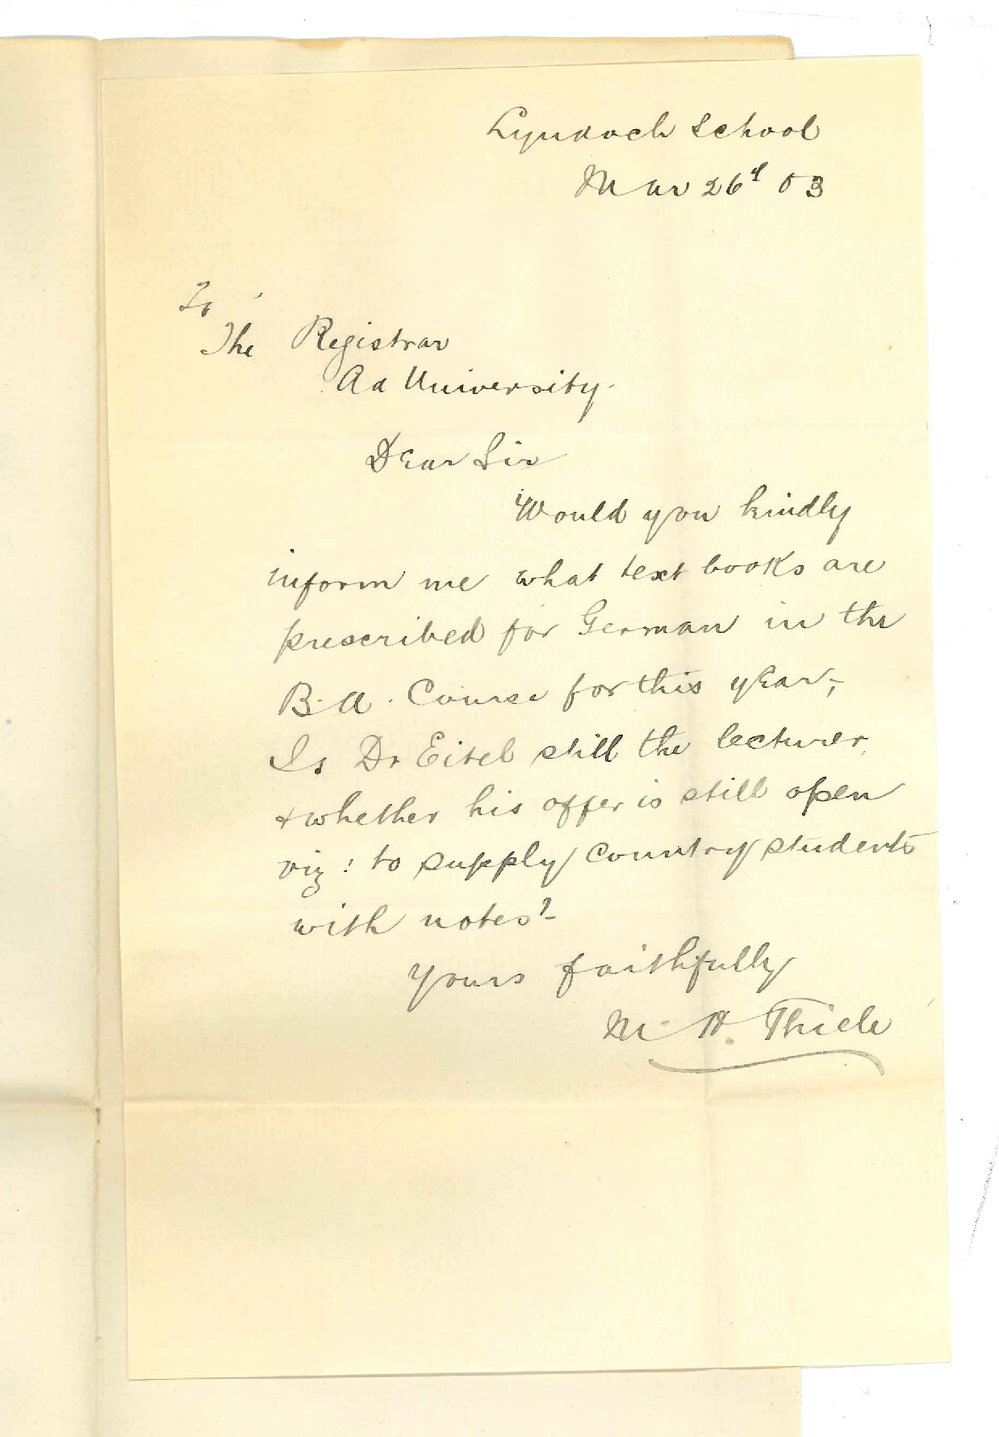 Lyndoch School
Mar 26th 03
To
The Registrar
Ad University.
Dear Sir
Would you kindly
inform me what text books are
prescribed for German in the
B.A. Course for this year,-
Is Dr Eitel still the lecturer,
& whether his offer is still open
viz: to supply country students
with notes?-
Yours faithfully
M. H. Thiele